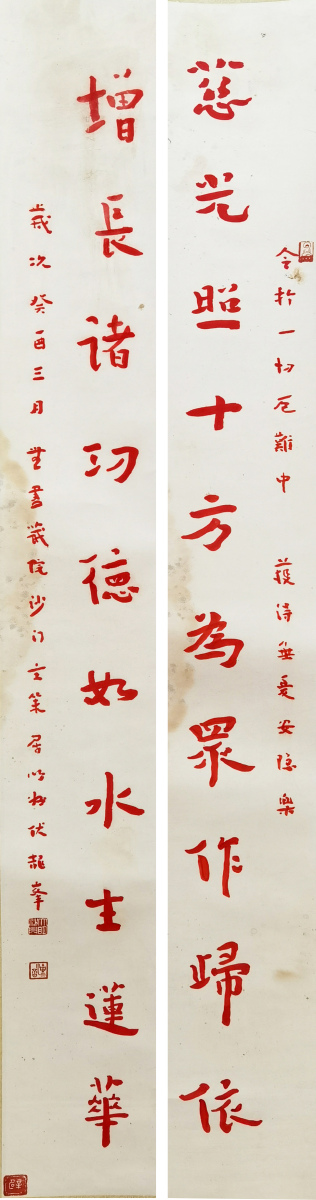 令於一切厄難中 獲得無憂安隱樂
慈光照十方為眾作歸依
增長諸功德如水生蓮華
歲次癸酉三月 無盡藏院沙门玄策居明州伏龍峯